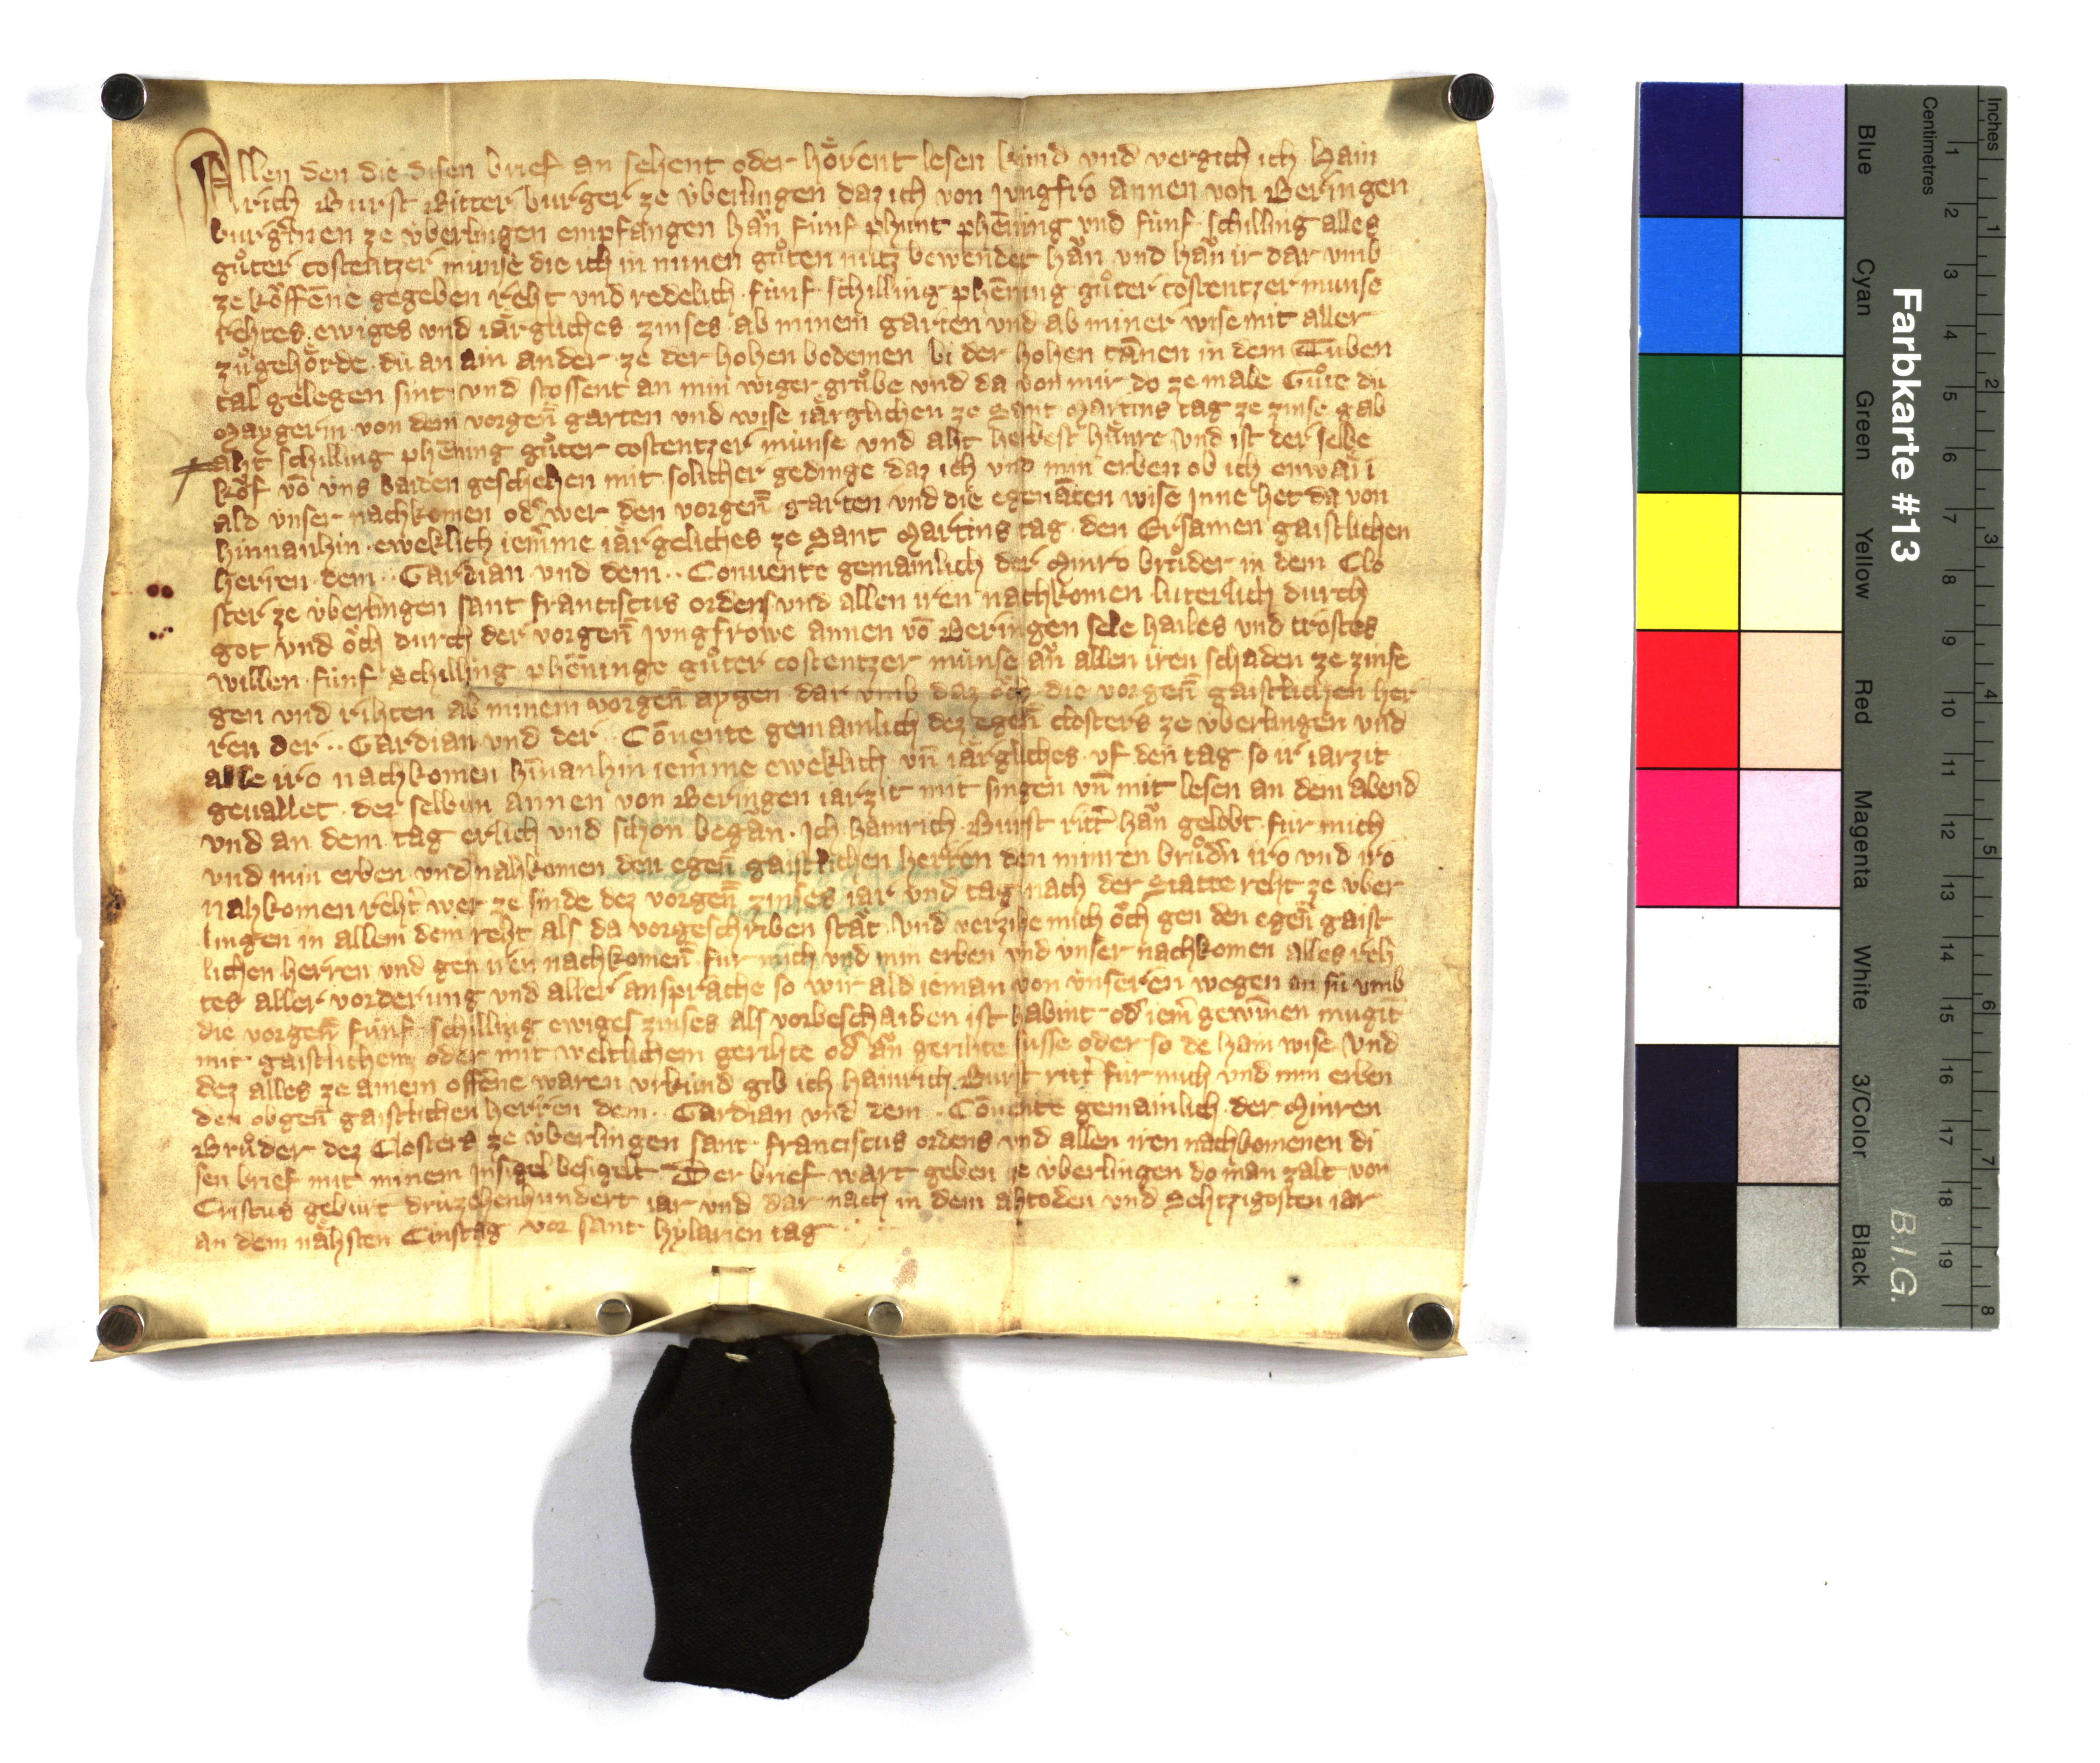 Allen den die disen brief an sehent oder hoͤrent lesen kúnd vnd vergich ich Hain
rich Burst Ritter burger ze v́berlingen daz ich von jungfro annen von Beringen
burgerinen ze v́berlingen empfangen haͮn fúnf phunt phēning vnd fúnf schilling alles
guͦter costentzer múnse die ich in minen guͦten nutz bewendet haͮn vnd haͮn ir dar vmb
ze koͮffēne gegeben reht vnd redelich fúnf schilling phēning guͦter costentzer múnse
rehtes ewiges vnd iaͤrgliches zinses ab minem garten vnd ab miner wise mit aller
zuͦgehoͤrde dú an ain ander ze der hohen bodemen bi der hohen tānen in dem Tuben
tal gelegen sint vnd stossent an min wiger gruͦbe vnd da von mir do ze male Guͦte dú
Maygerin von dem vorgen̄ garten vnd wise iaͤrglichen ze Sant Martins tag ze zinse gab
aht schilling phēning guͦter costentzer múnse vnd aht herbest huͤnre vnd ist der selbe
koͮf vō v́ns baiden geschehen mit solicher gedinge daz ich vnd min erben ob ich enwaͤri
ald vnser nachkomen od͛ wer den vorgen̄ garten vnd die egenāten wise jnne het da von
hinnanhin eweklich iem̄me iaͤrgeliches ze Sant Martins tag den Ersamen gaistlichen
herren dem .. Gardian vnd dem .. Conuente gemainlich der Minro bruͦder in dem Clo
ster ze v́berlingen sant franciscus ordens vnd allen iren nachkomen luterlich durch
got vnd oͮch durch der vorgen̄ jungfrowe annen vō Beringen sele hailes vnd trostes
willen fúnf Schilling phēninge guͦter costentzer múnse aͮn allen iren schaden ze zinse
gen vnd rihten ab minem vorgen̄ aygen dar vmb daz oͮch die vorgen̄ gaistlichen her
ren der .. Gardian vnd der .. Cōuente gemainlich dez egen̄ closters ze v́berlingen vnd
alle iro nachkomen hīnanhin iem̄me eweklich vn̄ iaͤrgliches vf den tag so ir iarzit
geuallet der selbun annen von Beringen iarzit mit singen vn̄ mit lesen an dem abend
vnd an dem tag erlich vnd schon begaͮn. Ich hainrich Burst ritt͛ haͮn gelobt fúr mich
vnd min erben vnd nahkomen den egen̄ gaistlichen herren den minren bruͦd͛n iro vnd iro
nahkomen reht wer ze sinde dez vorgen̄ zinses iar vnd tag nach der Statte reht ze v́ber
lingen in allem dem reht als da vorgeschriben staͤt vnd verzihe mich oͮch gen den egen̄ gaist
lichen herren vnd gen iren nachkomen̄ fúr mich vnd min erben vnd vnser nachkomen alles reh
tes aller vorderung vnd aller ansprache so wir ald ieman von v́nseren wegen an sú vmb
die vorgen̄ fúnf schilling ewiges zinses als vorbeschaiden ist habint od͛ iem̄ gewīnen mugīt
mit gaistlichem oder mit weltlichem gerihte od͛ aͮn gerihte susse oder so de hain wise Vnd
dez alles ze ainem offēne waren vrkúnd gib ich hainrich Burst ritt͛ fúr mich vnd min erben
den obgen̄ gaistlichen herren dem .. Gardian vnd dem .. Cōuente gemainlich der Minren
Bruͦder dez Closters ze v́berlingen sant franciscus ordens vnd allen iren nachkomenen di
sen brief mit minem jnsigel besigelt Der brief wart geben ze v́berlingen do man zalt von
Cristus gebúrt drúzehenhundert iar vnd dar nach in dem ahtoden vnd Sehtzigosten iar
an dem naͤhsten Cinstag vor sant hylarien tag
Farbkarte #13
B.I.G.
Inches
Centimetres
1 2 3 4 5 6 7 8 9 10 11 12 13 14 15 16 17 18 19
1 2 3 4 5 6 7 8
Blue
Cyan
Green
Yellow
Red
Magenta
White
3/Color
Black